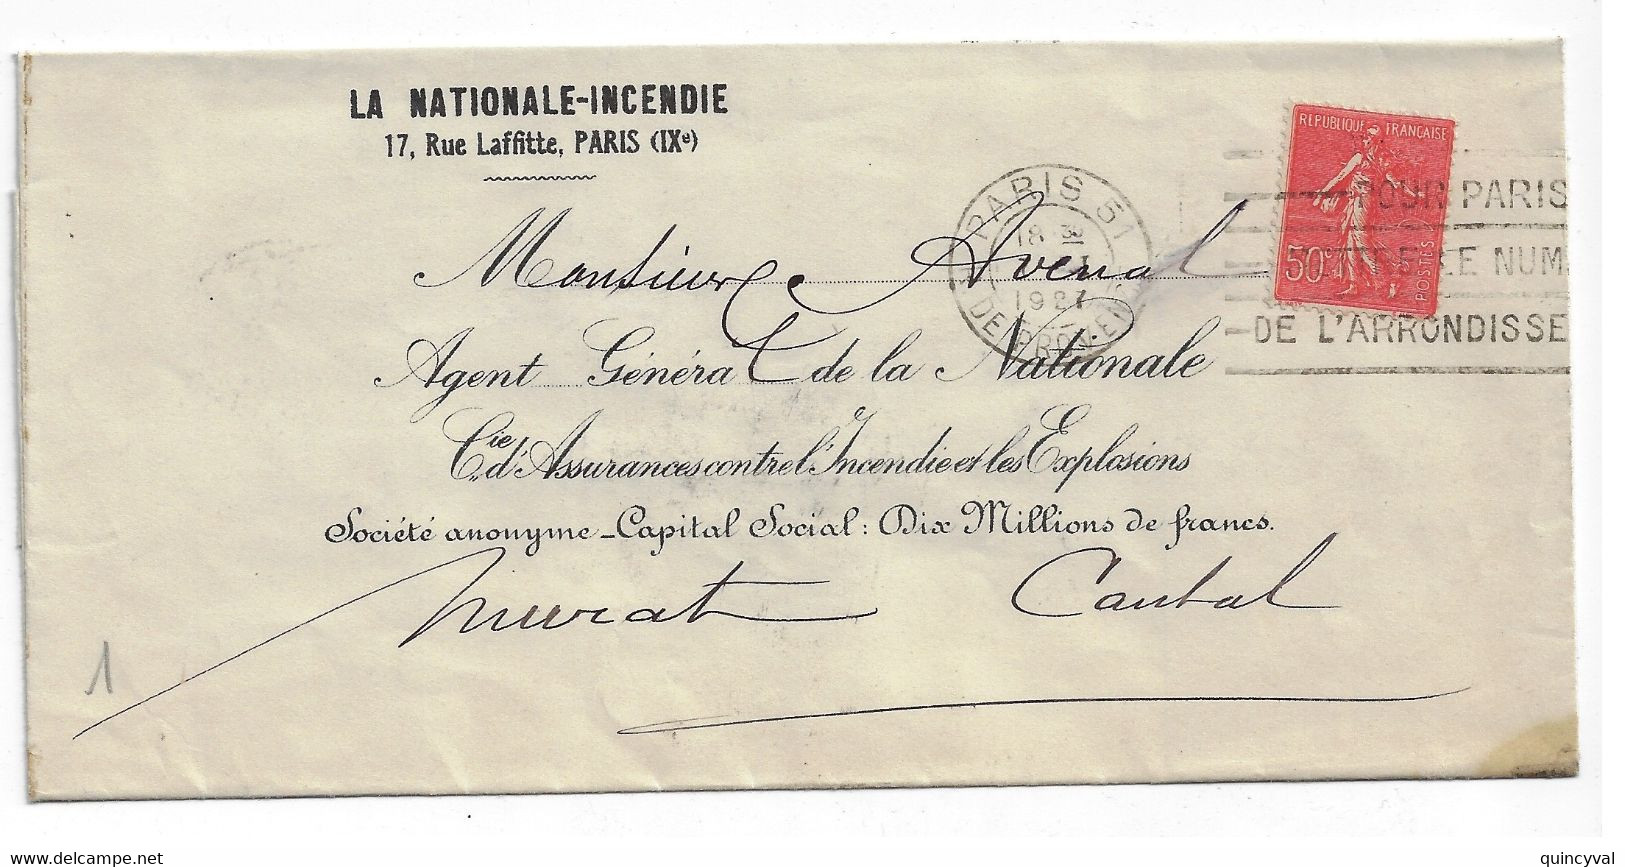 LA NATIONALE-INCENDIE
17, Rue Laffitte, PARIS (IXe)
REPUBLIQUE FRANÇAISE
50c POSTES
PARIS 51
18 30
1927
R. DE PRONY
POUR PARIS
NUM
DE L'ARRONDISSE
Monsieur Avenal
Agent Général de la Nationale
Cie d'Assurances contre l'Incendie et les Explosions
Société anonyme _ Capital Social : Dix Millions de francs.
Murat Cantal
1
www.delcampe.net
quincyval